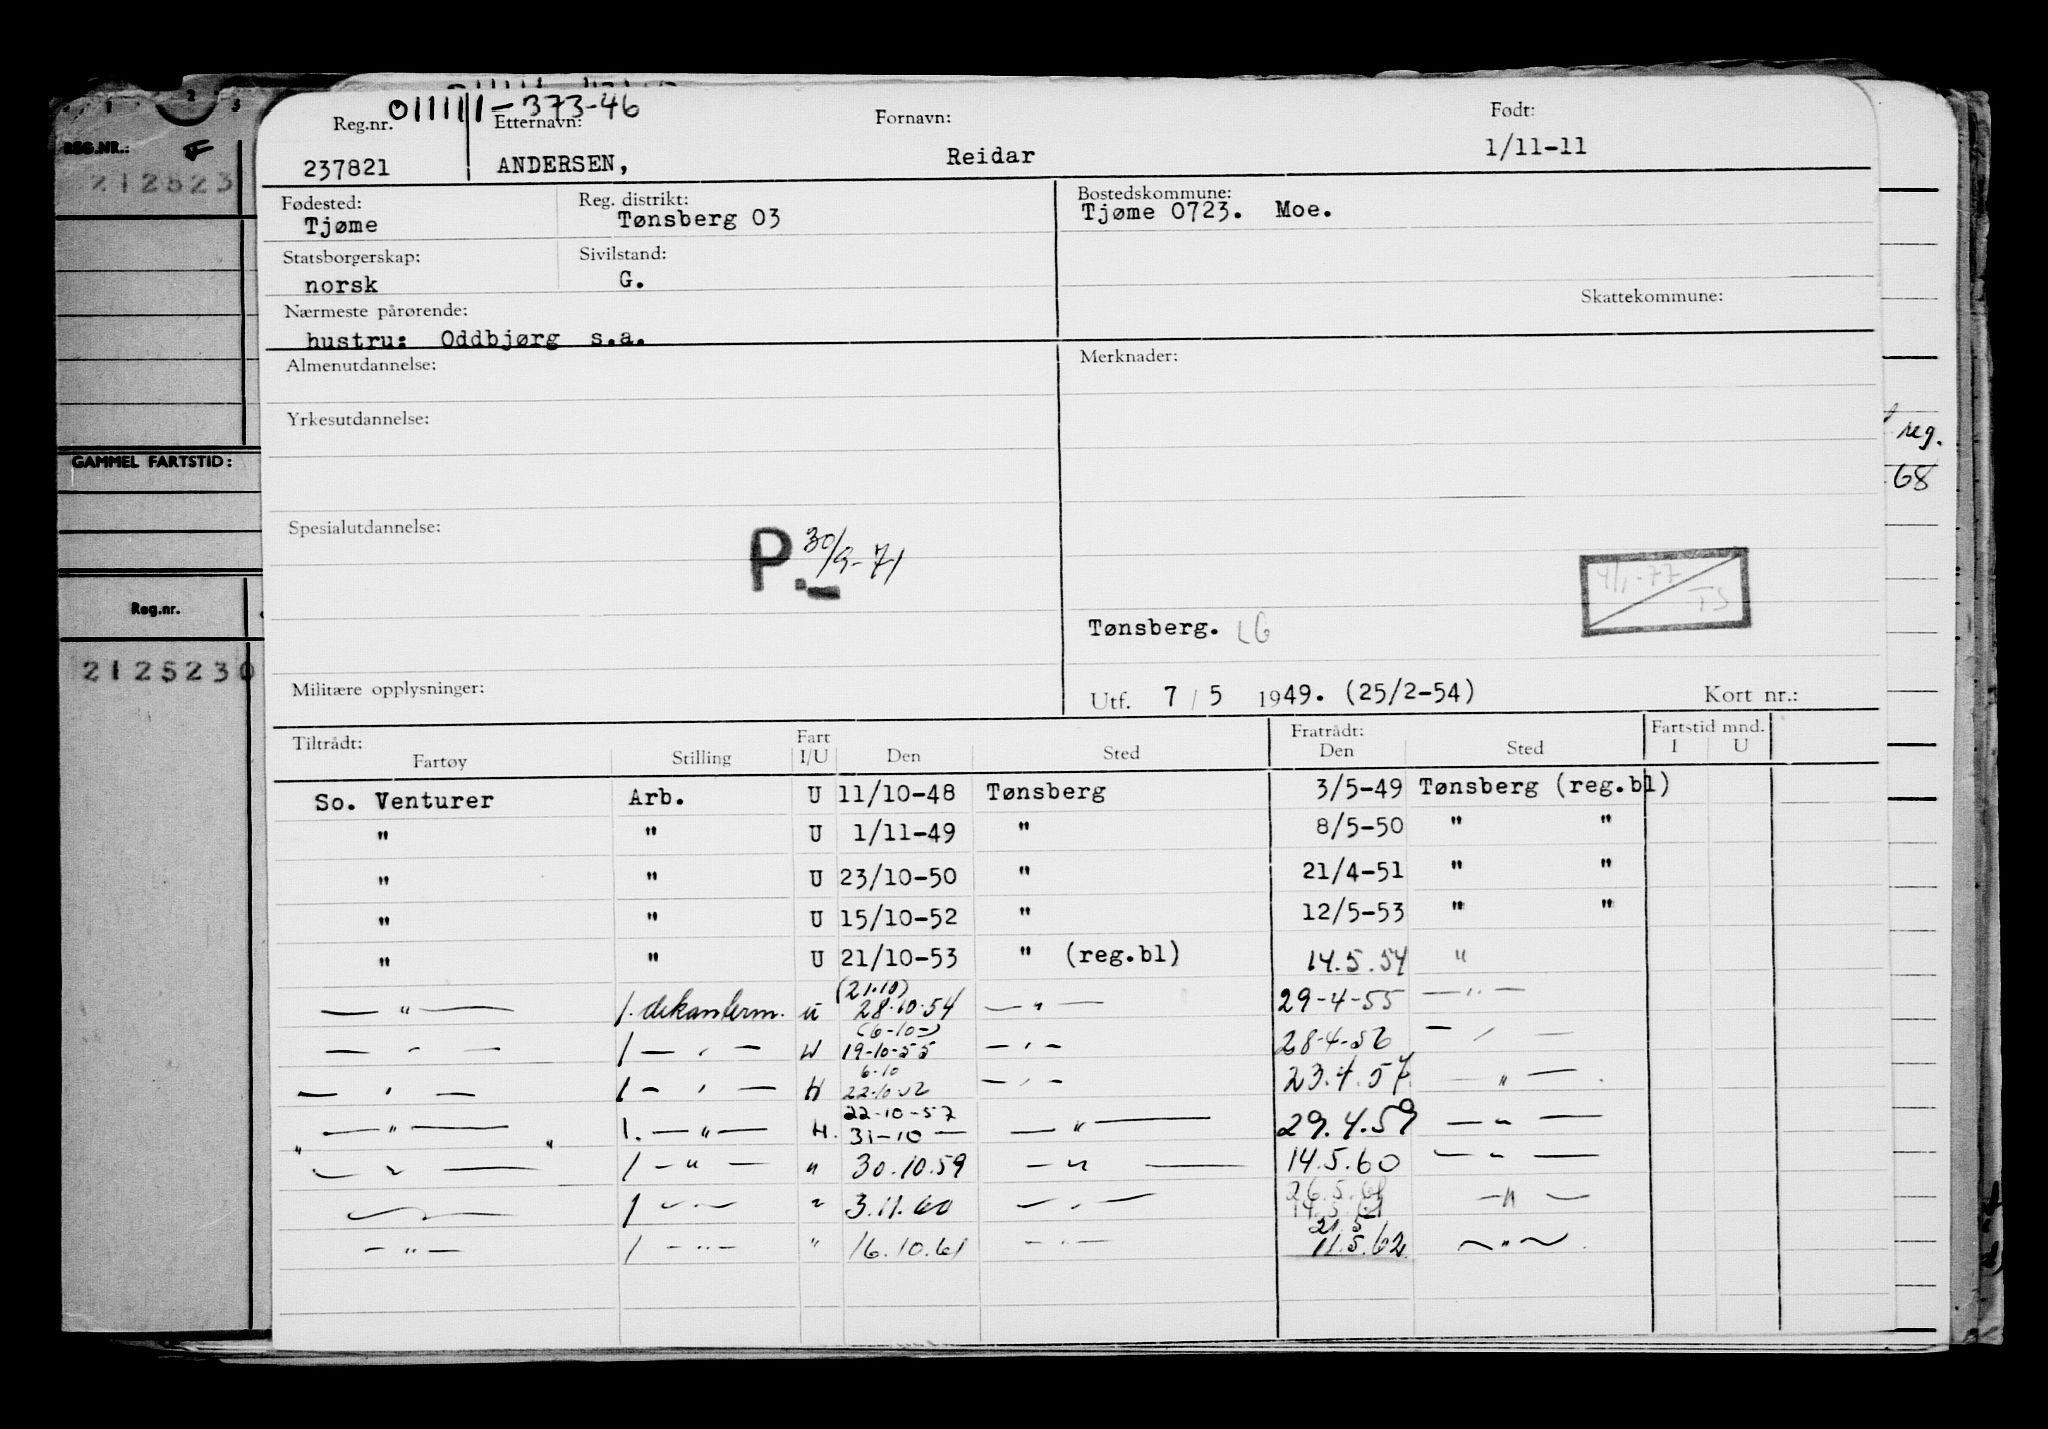 011111-373-46
Reg.nr. Etternavn: Fornavn: Født:
237821 ANDERSEN, Reidar 1/11-11
Fødested: Reg. distrikt: Bostedskommune:
Tjøme Tønsberg 03 Tjøme 0723. Moe.
Statsborgerskap: Sivilstand:
norsk G.
Skattekommune:
Nærmeste pårørende:
hustru: Oddbjørg s.a.
Almenutdannelse: Merknader:
Yrkesutdannelse:
Spesialutdannelse:
P.- 30/9-71
4/1-77 TS
Tønsberg. LG
Militære opplysninger: Utf. 7/5 1949. (25/2-54) Kort nr.:
Tiltrådt: Fart Fratrådt: Fartstid mnd.
Fartøy Stilling I/U Den Sted Den Sted I U
So. Venturer Arb. U 11/10-48 Tønsberg 3/5-49 Tønsberg (reg.bl)
" " U 1/11-49 " 8/5-50 " "
" " U 23/10-50 " 21/4-51 " "
" " U 15/10-52 " 12/5-53 " "
" " U 21/10-53 " (reg.bl) 14.5.54 "
(21.10)
— " — 1. dekanterm. u 28.10.54 — " — 29-4-55 — " —
(6-10-)
— " — 1 — " — 19-10-55 — " — 28-4-56 — " —
6-10
— " — 1 — " — H — " — 23.4.57 — " —
22-10-57
— " — 1. — " — H. 31-10 — — " — 29.4.59 — " —
— " — 1 — " — " 30.10.59 — " — 14.5.60 — " —
26.5.61
— " — 1 — " — " 3.11.60 — " — 14.5.61 — " —
21.5
— " — 1 — " — " 16.10.61 — " — 11.5.62 — " —
1 2 3
REG.NR.:
212523
GAMMEL FARTSTID:
Reg.nr.
2125230
reg.
68